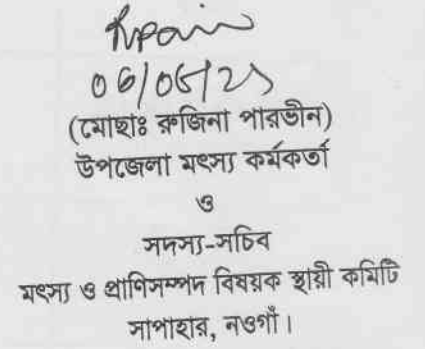 06/05/21
(মোছাঃ রুজিনা পারভীন)
উপজেলা মৎস্য কর্মকর্তা
ও
সদস্য-সচিব
মৎস্য ও প্রাণিসম্পদ বিষয়ক স্থায়ী কমিটি
সাপাহার, নওগাঁ।